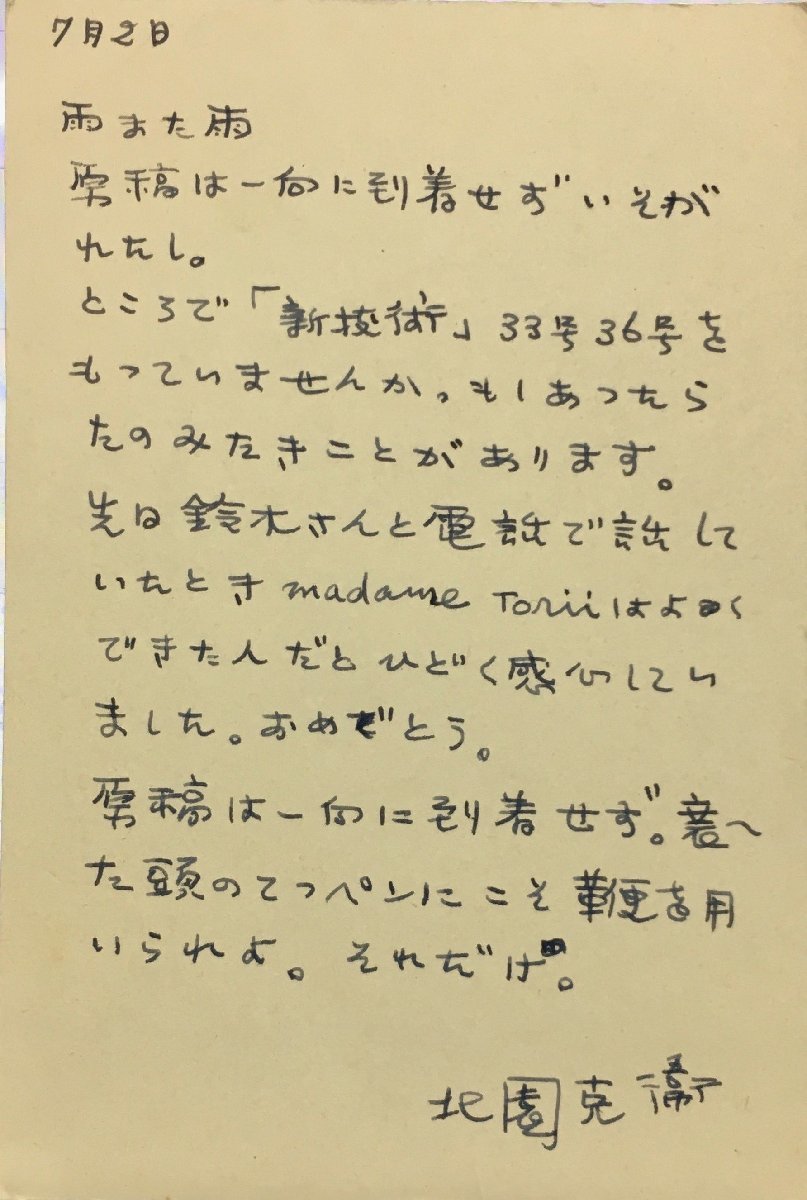 7月2日
雨また雨
原稿は一向に到着せずいそが
れたし。
ところで「新技術」33号36号を
もっていませんか。もしあったら
たのみたきことがあります。
先日鈴木さんと電話で話して
いたとき madame Toriiはよく
できた人だとひどく感心してい
ました。おめでとう。
原稿は一向に到着せず。衰へ
た頭のてっペンにこそ鞭を用
いられよ。それだけ。
北園克衛